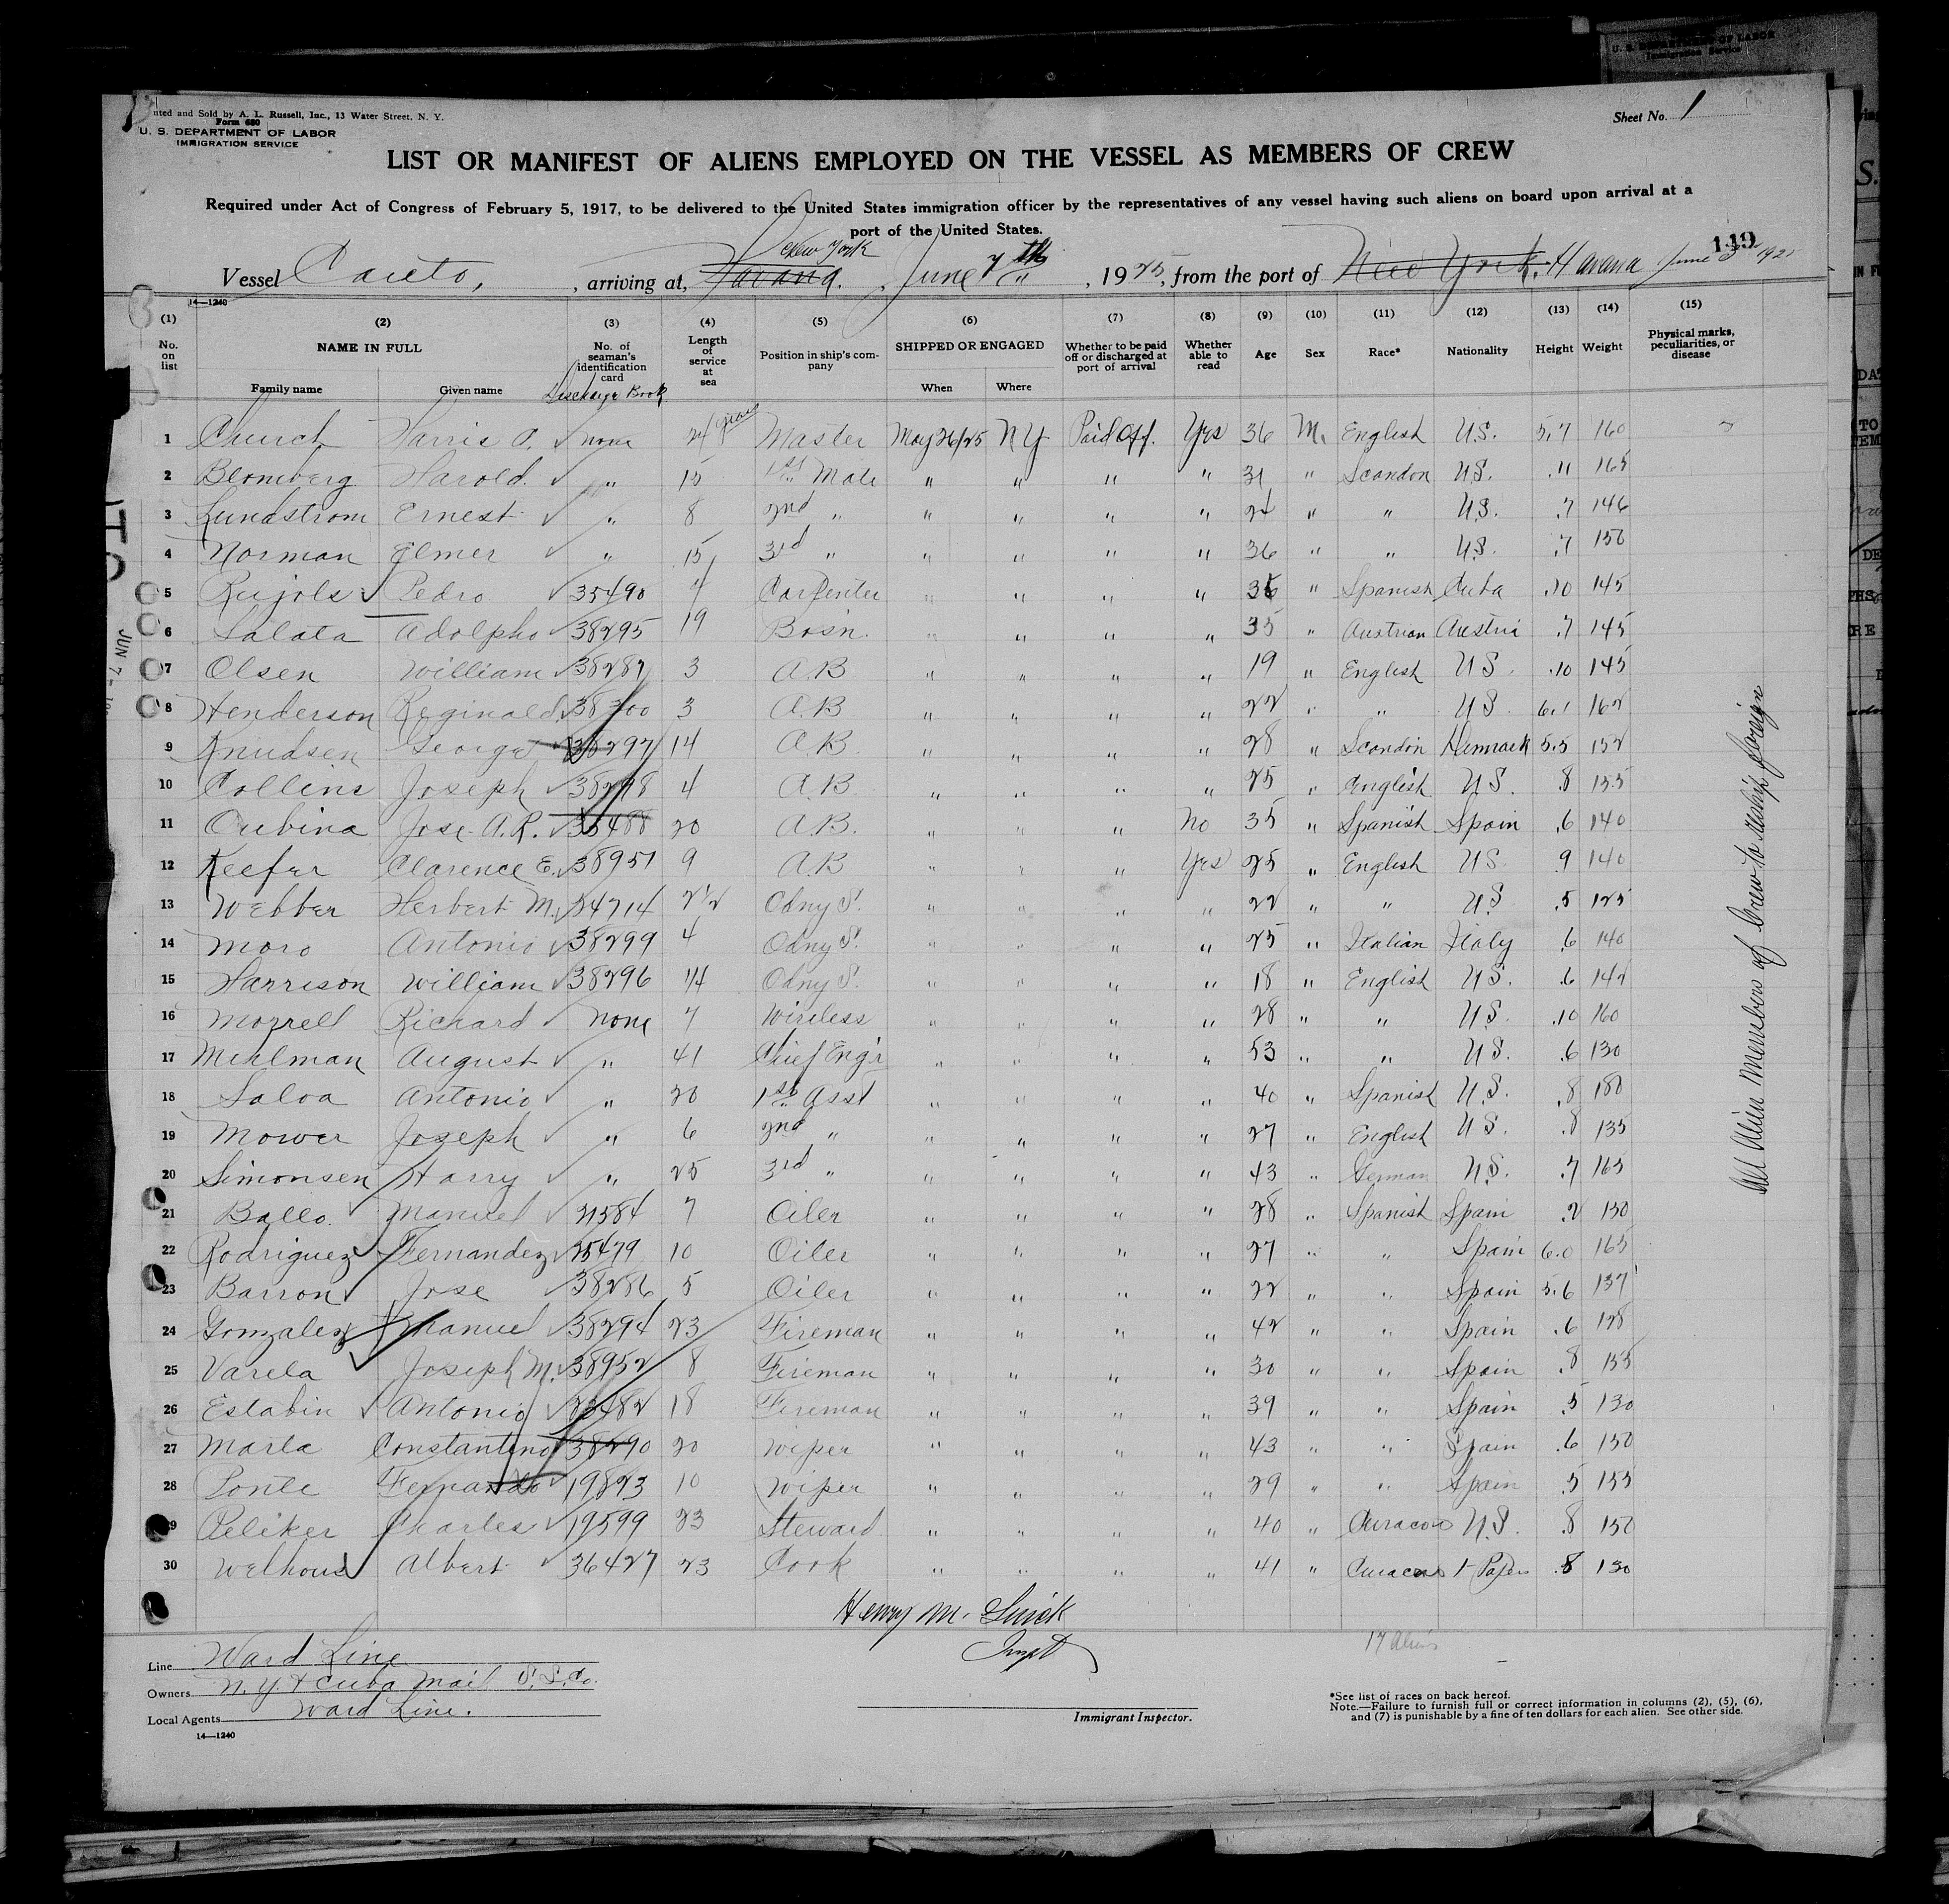 nted and Sold by A. L. Russell, Inc., 13 Water Street, N. Y.
Form 680
U. S. DEPARTMENT OF LABOR
IMMIGRATION SERVICE
Sheet No. 1
LIST OR MANIFEST OF ALIENS EMPLOYED ON THE VESSEL AS MEMBERS OF CREW
Required under Act of Congress of February 5, 1917, to be delivered to the United States immigration officer by the representatives of any vessel having such aliens on board upon arrival at a
port of the United States.
149
New York
Vessel Cauto, , arriving at, Havana. , June 7th , 1925, from the port of New York. Havana June 3rd 192
14—1240
(1) (2) (3) (4) (5) (6) (7) (8) (9) (10) (11) (12) (13) (14) (15)
No. on list NAME IN FULL Family name Given name No. of seaman's identification card Discharge Book Length of service at sea Position in ship's company SHIPPED OR ENGAGED When Where Whether to be paid off or discharged at port of arrival Whether able to read Age Sex Race* Nationality Height Weight Physical marks, peculiarities, or disease
1 Church Harris A. none 24 years Master May 26/25 N Y Paid Off. Yes 36 M. English U.S. 5.7 160
2 Blomberg Harold. " 15 1st Mate " " " " 31 " Scandon U.S. .11 165
3 Lundstrom Ernest " 8 2nd " " " " " 24 " " U.S. .7 146
4 Norman Elmer " 15 3rd " " " " " 36 " " U.S. .7 150
5 Rujols Pedro 35490 4 Carpenter " " " " 36 " Spanish Cuba .10 145
6 Salata Adolpho 38295 19 Bosn. " " " " 35 " Austrian Austri .7 145
7 Olsen William 38287 3 A.B " " " " 19 " English U S .10 145
8 Henderson Reginald 38300 3 A.B " " " " 22 " " U S 6.1 162
9 Knudsen George 38297 14 A.B. " " " " 28 " Scandin Denmark 5.5 152
10 Collins Joseph 38298 4 A.B. " " " " 25 " English U.S. .8 155
11 Oubina Jose A.R. 35488 20 A.B. " " " No 35 " Spanish Spain .6 140
12 Keefer Clarence E. 38951 9 A.B " " " Yes 25 " English US 9 140
13 Webber Herbert M. 34714 2 1/2 Odny S. " " " " 22 " " U.S .5 125
14 Moro Antonio 38299 4 Odny S. " " " " 25 " Italian Italy .6 140
15 Harrison William 38296 1/4 Odny S. " " " " 18 " English U.S. .6 142
16 Mozrell Richard none 7 Wireless " " " " 28 " " U.S. .10 160
17 Mehlman August " 41 Chief Eng'r " " " " 53 " " U.S. .6 130
18 Saloa Antonio " 20 1st Asst " " " " 40 " Spanish U.S. .8 180
19 Mower Joseph " 6 2nd " " " " " 27 " English U.S. .8 135
20 Simonsen Harry " 25 3rd " " " " " 43 " German U.S. .7 165
21 Ballo. Manuel 21584 7 Oiler " " " " 28 " Spanish Spain .2 130
22 Rodriguez Fernandez 25479 10 Oiler " " " " 27 " " Spain 6.0 165
23 Barron Jose 38286 5 Oiler " " " " 22 " " Spain 5.6 137
24 Gonzalez Manuel 38294 23 Fireman " " " " 42 " " Spain .6 128
25 Varela Joseph M. 38952 8 Fireman " " " " 30 " " Spain .8 155
26 Estabin Antonio 18 Fireman " " " " 39 " " Spain .5 130
27 Marla Constantino 38290 20 Wiper " " " " 43 " " Spain .6 150
28 Ponte Fernando 19823 10 Wiper " " " " 29 " " Spain .5 155
29 Peliker Charles 19599 23 Steward " " " " 40 " Curacoa U.S. .8 150
30 Welhous Albert 36427 23 Cook " " " " 41 " Curacao 1st Papers .8 130
All Alien Members of Crew to reship foreign
Henry M.
Inspt
17 Aliens
Line Ward Line
Owners N. Y. & Cuba Mail S. S. Co.
Local Agents Ward Line.
14—1240
Immigrant Inspector.
*See list of races on back hereof.
Note.—Failure to furnish full or correct information in columns (2), (5), (6),
and (7) is punishable by a fine of ten dollars for each alien. See other side.